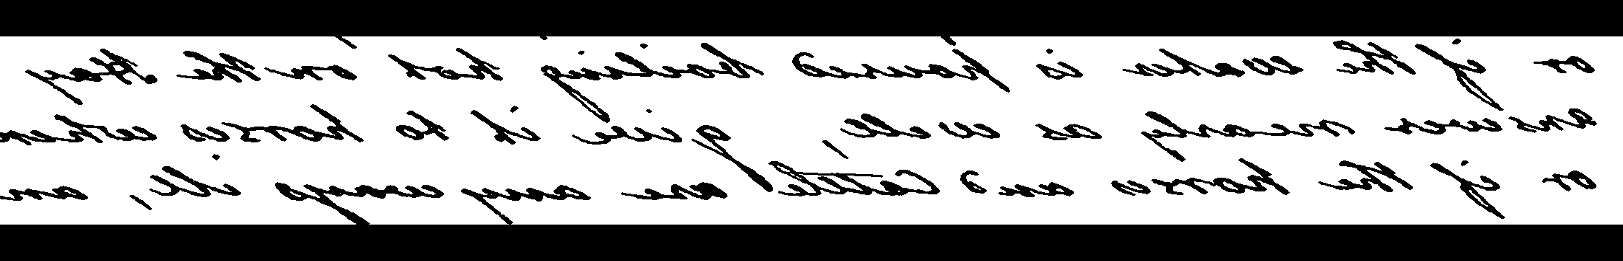 or if the water is poured boeling hot on the Hay
answers nearly as well, give it to horses when
or if the horses and Cattle are anyways ill, an